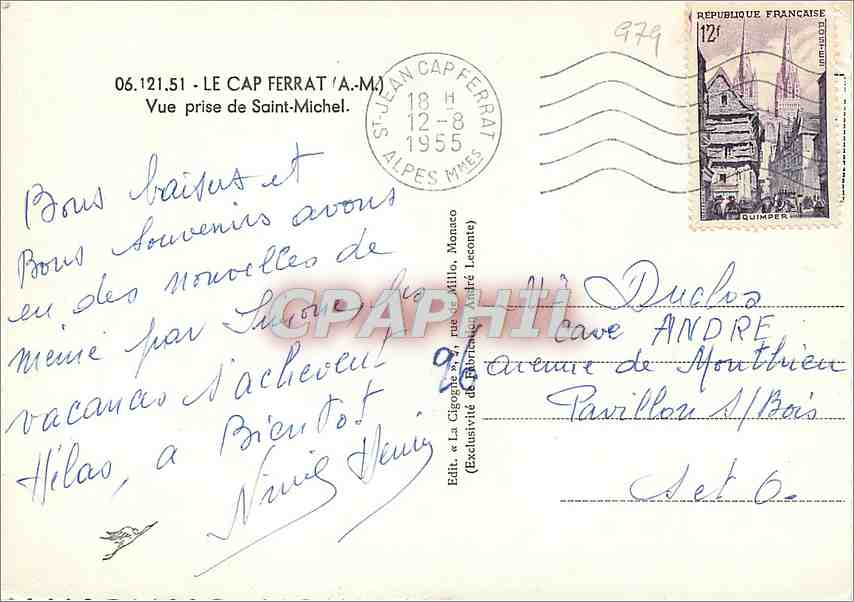 979
RÉPUBLIQUE FRANÇAISE
12F
POSTES
QUIMPER
06.121.51 - LE CAP FERRAT (A.-M.)
Vue prise de Saint-Michel.
ST-JEAN CAP FERRAT
18 H
12-8
1955
ALPES MMES
Bons baisers et
Bons souvenirs avons
eu des nouvelles de
par Simone, les
vacances s'achèvent
Hélas, a Bientot
Henri
Edit. « La Cigogne », rue de Millo, Monaco
(Exclusivité de Fabrication André Leconte)
CPAPHIL
96
Mr Duclos
cave ANDRE
avenue de Monthieu
Pavillon s/Bois
Set O.